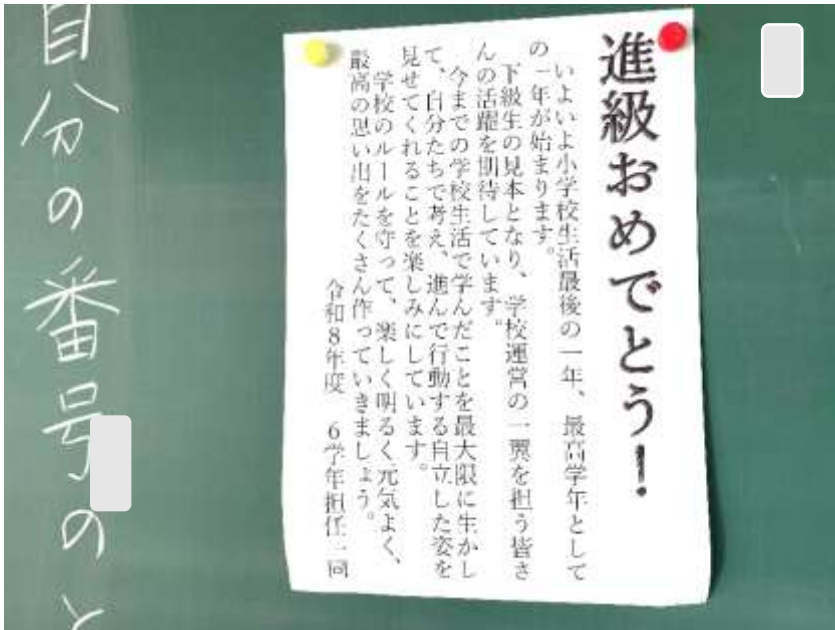 進級おめでとう！
いよいよ小学校生活最後の一年、最高学年として
の一年が始まります。
下級生の見本となり、学校運営の一翼を担う皆さ
んの活躍を期待しています。
今までの学校生活で学んだことを最大限に生かし
て、自分たちで考え、進んで行動する自立した姿を
見せてくれることを楽しみにしています。
学校のルールを守って、楽しく明るく元気よく、
最高の思い出をたくさん作っていきましょう。
令和８年度　６学年担任一同
自分の番号のと